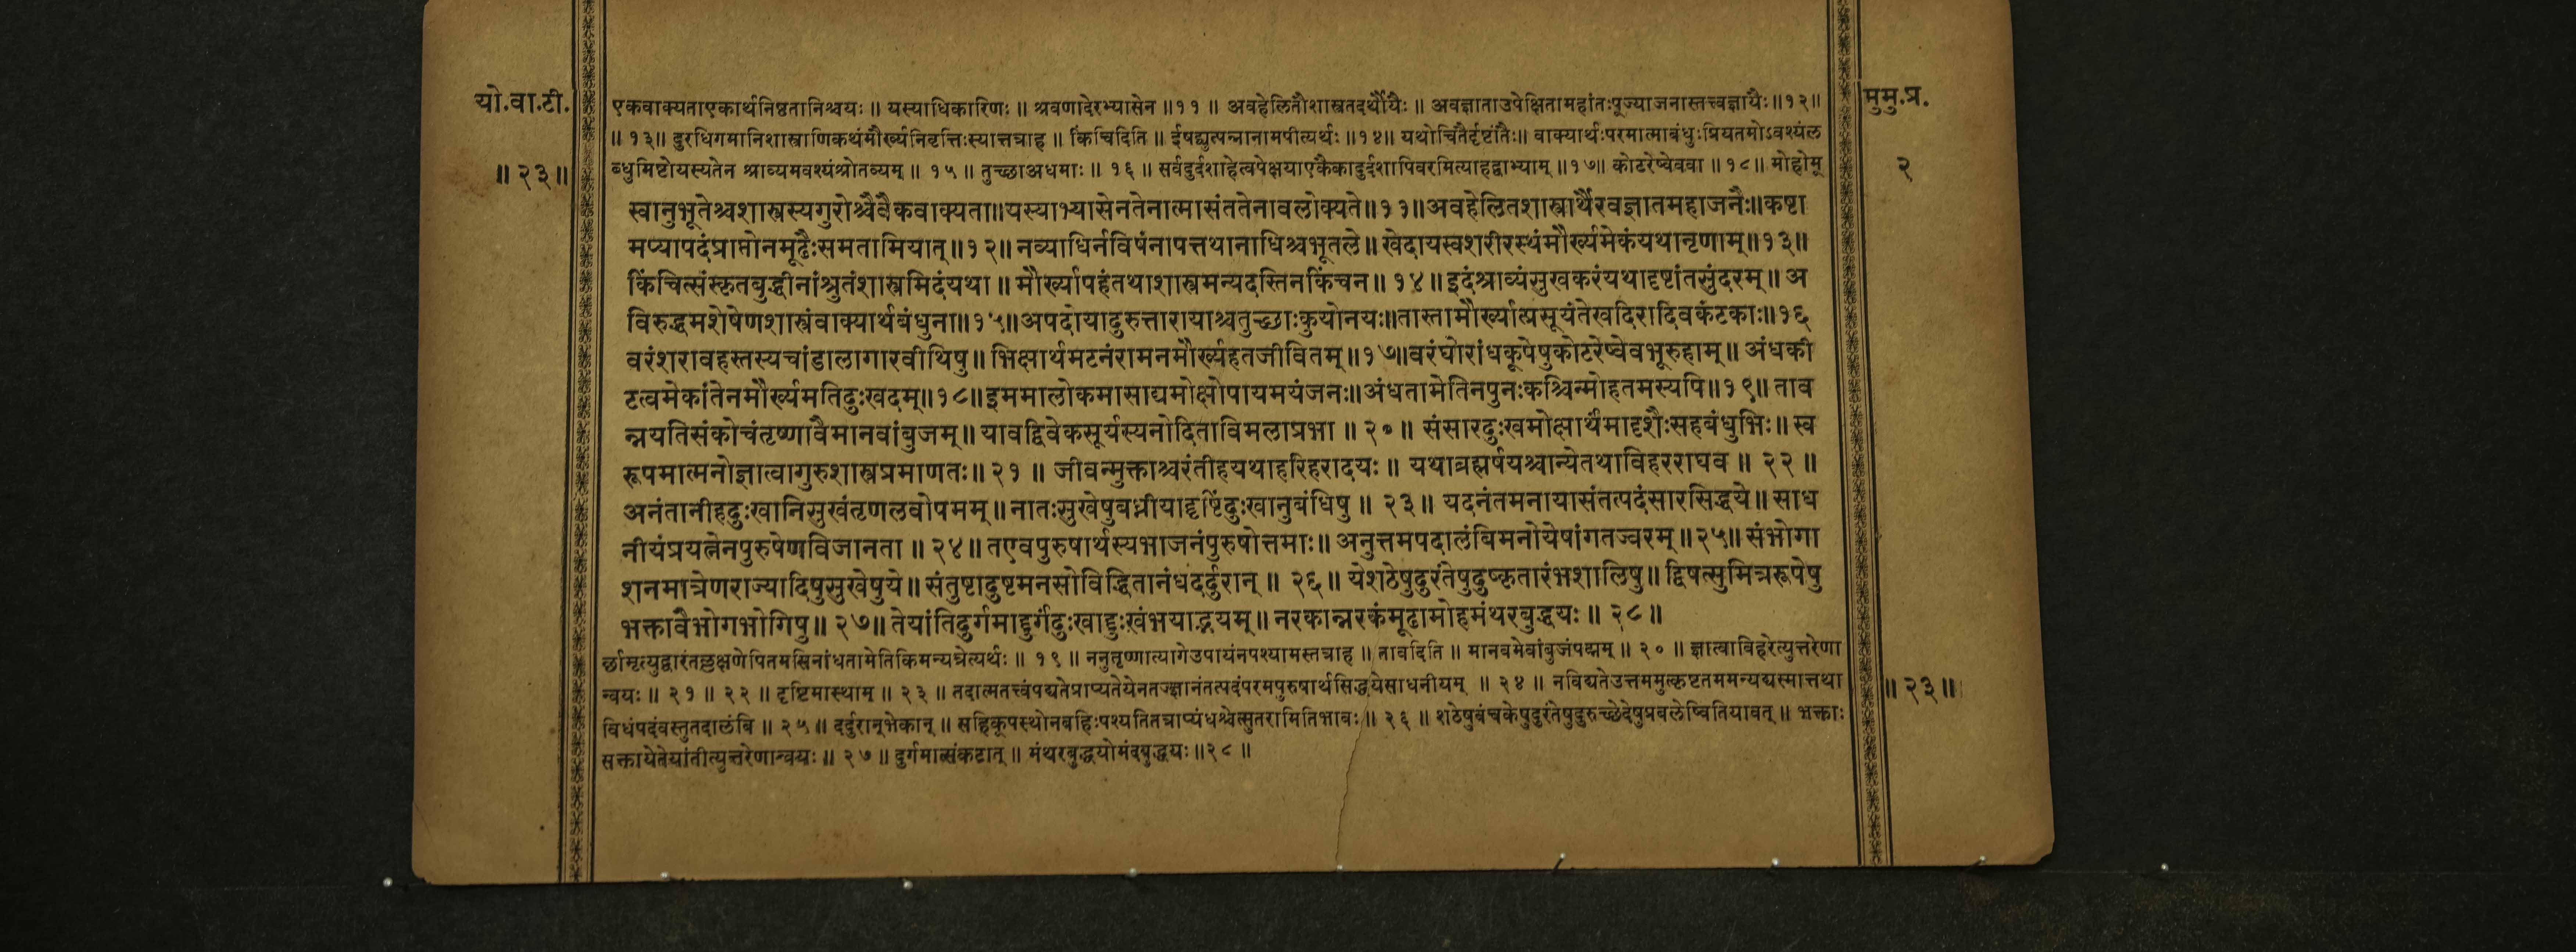 यो.वा.टी.
॥ २३॥
मुमु.प्र.
२
एकवाक्यताएकार्थनिष्ठतानिश्चयः ॥ यस्याधिकारिणः ॥ श्रवणादेरभ्यासेन ॥११ ॥ अवहेलितौशास्त्रतदर्थौयैः ॥ अवज्ञाताउपेक्षितामहांतःपूज्याजनास्तत्त्वज्ञायैः॥१२॥
॥ १३॥ दुरधिगमानिशास्त्राणिकथंमौर्ख्यनिवृत्तिःस्यात्तत्राह ॥ किंचिदिति ॥ ईषद्व्युत्पन्नानामपीत्यर्थः ॥१४॥ यथोचितैर्दृष्टांतैः॥ वाक्यार्थःपरमात्माबंधुःप्रियतमोऽवश्यंल
ब्धुमिष्टोयस्यतेन श्राव्यमवश्यंश्रोतव्यम् ॥ १५ ॥ तुच्छाअधमाः ॥ १६ ॥ सर्वदुर्दशाहेत्वपेक्षयाएकैकादुर्दशापिवरमित्याहद्वाभ्याम् ॥१७॥ कोटरेष्वेववा ॥१८॥ मोहोमू
स्वानुभूतेश्चशास्त्रस्यगुरोश्चैवैकवाक्यता॥यस्याभ्यासेनतेनात्मासंततेनावलोक्यते॥११॥अवहेलितशास्त्रार्थैरवज्ञातमहाजनैः॥कष्टा
मप्यापदंप्राप्तोनमूढैःसमतामियात्॥१२॥ नव्याधिर्नविषंनापत्तथानाधिश्चभूतले॥ खेदायस्वशरीरस्थंमौर्ख्यमेकंयथानृणाम्॥१३॥
किंचित्संस्कृतबुद्धीनांश्रुतंशास्त्रमिदंयथा ॥ मौर्ख्यापहंतथाशास्त्रमन्यदस्तिनकिंचन॥ १४॥ इदंश्राव्यंसुखकरंयथादृष्टांतसुंदरम्॥ अ
विरुद्धमशेषेणशास्त्रंवाक्यार्थबंधुना॥१५॥अपदोयादुरुत्तारायाश्चतुच्छाःकुयोनयः॥तास्तामौर्ख्यात्प्रसूयंतेखदिरादिवकंटकाः॥१६
वरंशरावहस्तस्यचांडालागारवीथिषु॥ भिक्षार्थमटनंरामनमौर्ख्यहतजीवितम्॥१७॥वरंघोरांधकूपेषुकोटरेष्वेवभूरुहाम्॥ अंधकी
टत्वमेकांतेनमौर्ख्यमतिदुःखदम्॥१८॥इममालोकमासाद्यमोक्षोपायमयंजनः॥अंधतामेतिनपुनःकश्चिन्मोहतमस्यपि॥१९॥ ताव
न्नयतिसंकोचंतृष्णावैमानवांबुजम्॥ यावद्विवेकसूर्यस्यनोदिताविमलाप्रभा ॥ २० ॥ संसारदुःखमोक्षार्थंमादृशैःसहबंधुभिः॥ स्व
रूपमात्मनोज्ञात्वागुरुशास्त्रप्रमाणतः॥ २१ ॥ जीवन्मुक्ताश्चरंतीहयथाहरिहरादयः ॥ यथाब्रह्मर्षयश्चान्येतथाविहरराघव ॥ २२ ॥
अनंतानीहदुःखानिसुखंतृणलवोपमम्॥ नातःसुखेषुबध्नीयाद्दृष्टिंदुःखानुबंधिषु ॥ २३॥ यदनंतमनायासंतत्पदंसारसिद्धये॥ साध
नीयंप्रयत्नेनपुरुषेणविजानता ॥ २४॥ तएवपुरुषार्थस्यभाजनंपुरुषोत्तमाः॥ अनुत्तमपदालंबिमनोयेषांगतज्वरम्॥२५॥ संभोगा
शनमात्रेणराज्यादिषुसुखेषुये॥ संतुष्टादुष्टमनसोविद्धितानंधदर्दुरान् ॥ २६॥ येशठेषुदुरंतेषुदुष्कृतारंभशालिषु॥ द्विषत्सुमित्ररूपेषु
भक्तावैभोगभोगिषु॥ २७॥ तेयांतिदुर्गमाद्दुर्गंदुःखाद्दुःखंभयाद्भयम्॥ नरकान्नरकंमूढामोहमंथरबुद्धयः ॥ २८॥
र्छामृत्युद्वारंतल्लक्षणेपितमसिनांधतामेतिकिमन्यत्रेत्यर्थः ॥ १९ ॥ ननुतृष्णात्यागेउपायंनपश्यामस्तत्राह ॥ तावदिति ॥ मानवमेवांबुजंपद्मम् ॥ २० ॥ ज्ञात्वाविहरेत्युत्तरेणा
न्वयः ॥ २१ ॥ २२ ॥ दृष्टिमास्थाम् ॥ २३ ॥ तदात्मतत्त्वंपद्यतेप्राप्यतेयेनतज्ज्ञानंतत्पदंपरमपुरुषार्थसिद्धयेसाधनीयम् ॥ २४ ॥ नविद्यतेउत्तममुत्कृष्टतममन्यद्यस्मात्तथा
विधंपदंवस्तुतदालंबि ॥ २५॥ दर्दुरान्भेकान् ॥ सहिकूपस्थोनबहिःपश्यतितत्राप्यंधश्चेत्सुतरामितिभावः ॥ २६ ॥ शठेषुवंचकेषुदुरंतेषुदुरुच्छेदेषुप्रबलेष्वितियावत् ॥ भक्ताः
सक्तायेतेयांतीत्युत्तरेणान्वयः ॥ २७ ॥ दुर्गमात्संकटात् ॥ मंथरबुद्धयोमंदबुद्धयः ॥२८ ॥
॥ २३॥